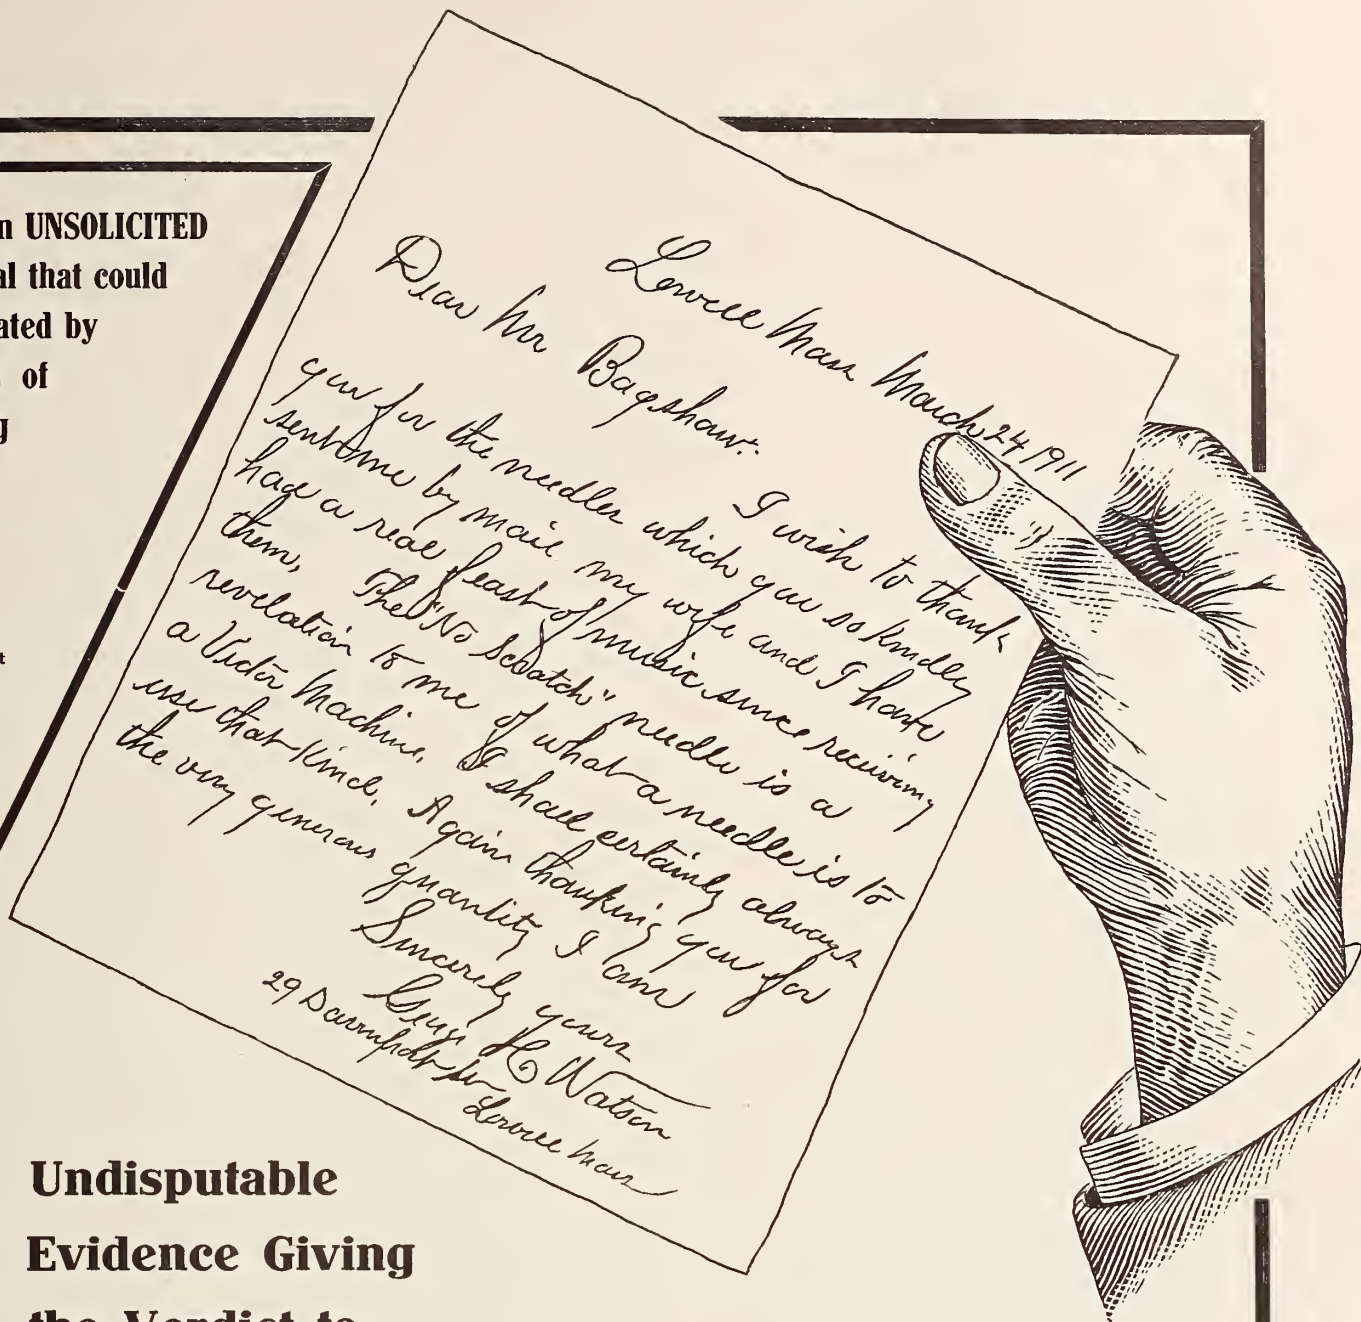 n UNSOLICITED
al that could
ated by
of
g
t
Lowell Mass March 24 1911
Dear Mr Bagshaw:
I wish to thank
you for the needles which you so kindly
sent me by mail my wife and I have
had a real feast of music since receiving
them, The "No Scratch" needle is a
revelation to me of what a needle is to
a Victor Machine, I shall certainly always
use that kind, Again thanking you for
the very generous quantity I am
Sincerely yours
H Watson
29 Davenport
Lowell Mass
Undisputable
Evidence Giving
the Verdict to